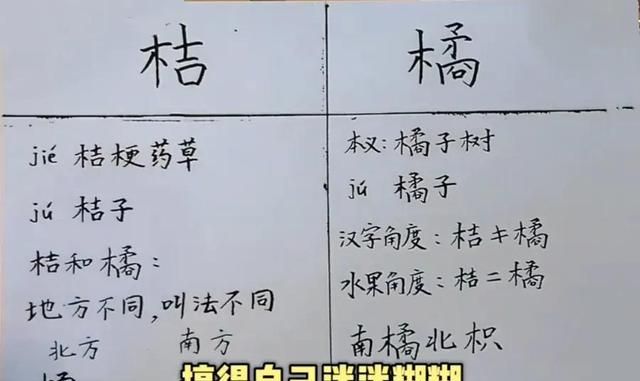 桔
jié 桔梗药草
jú 桔子
桔和橘：
地方不同，叫法不同
北方 南方
橘
本义：橘子树
jú 橘子
汉字角度：桔≠橘
水果角度：桔＝橘
南橘北枳
搞得自己迷迷糊糊